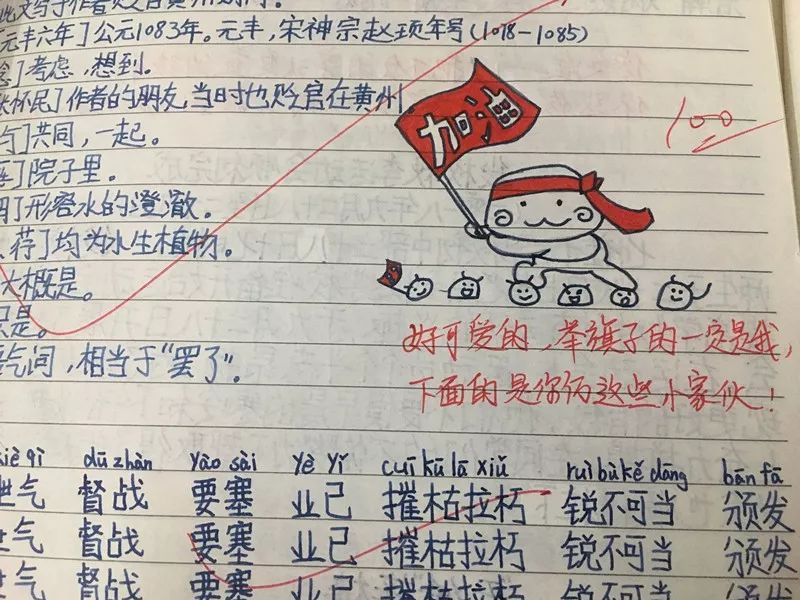 此文写于作者
元丰六年〕公元1083年。元丰，宋神宗赵顼年号(1078-1085)
念〕考虑，想到。
张怀民〕作者的朋友，当时也贬官在黄州
加油
100
与〕共同，一起。
庭〕院子里。
明〕形容水的澄澈。
荇〕均为水生植物。
大概是。
只是。
语气词，相当于“罢了”。
好可爱的，举旗子的一定是我，
下面的是你们这些小家伙！
xiè qì dū zhàn yào sài yè yǐ cuī kū lā xiǔ ruì bù kě dāng bān fā
泄气 督战 要塞 业已 摧枯拉朽 锐不可当 颁发
泄气 督战 要塞 业已 摧枯拉朽 锐不可当 颁发
泄气 督战 要塞 业已 摧枯拉朽 锐不可当 颁发